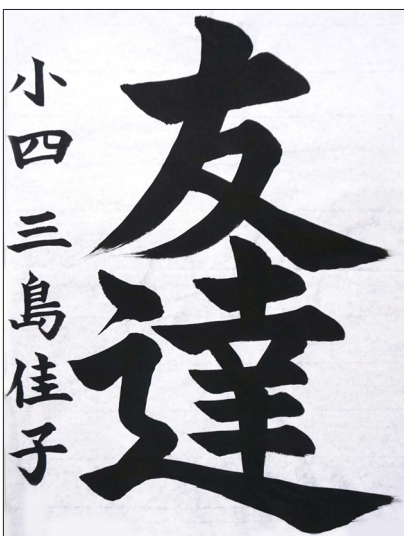 友達
小四 三島佳子